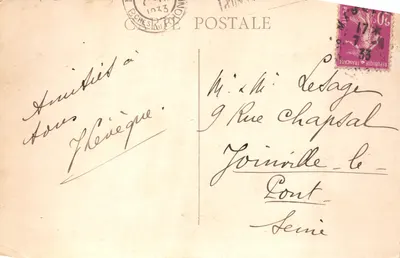 CARTE POSTALE
1933
17
33
Amitiés à
tous
Thévèque.
M. & M. Lesage
9 Rue Chapsal
Joinville-le-
Pont
Seine